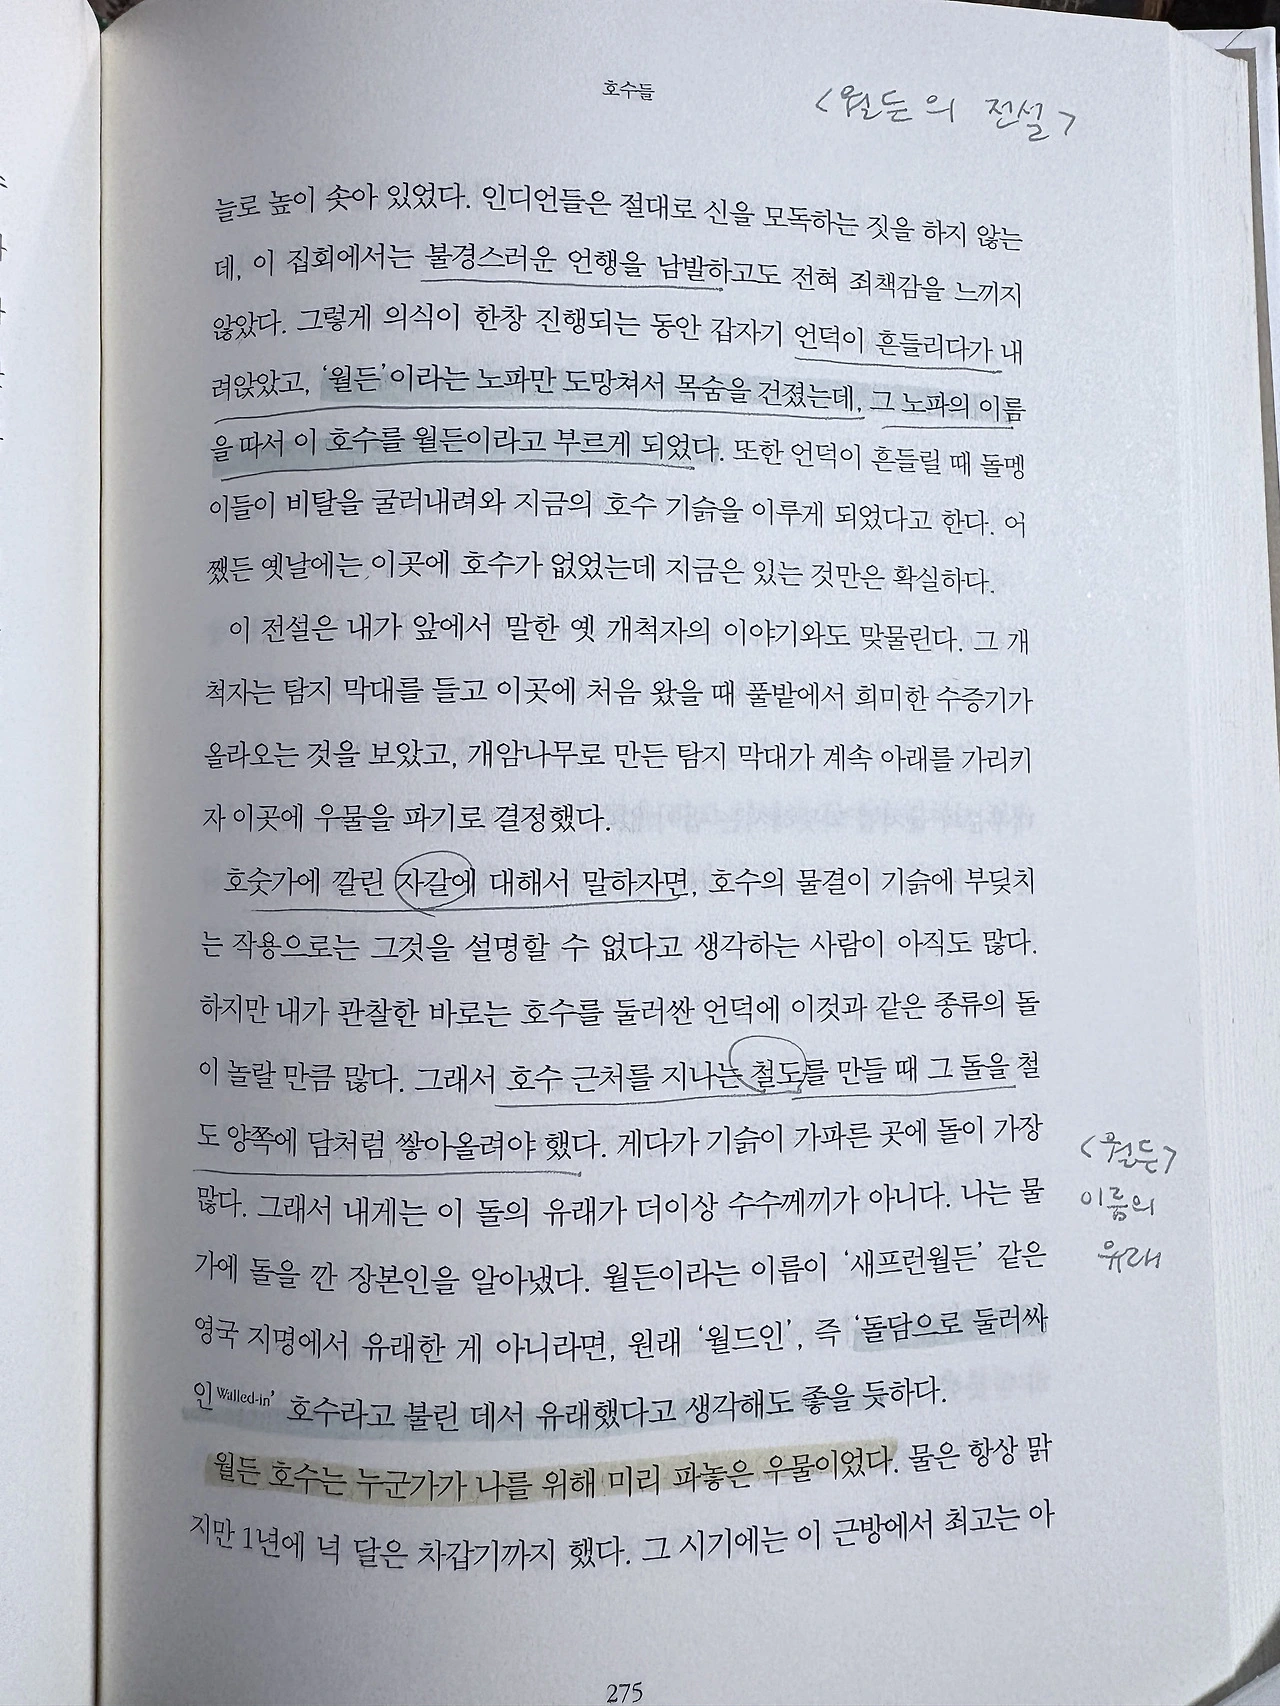 호수들
<월든의 전설>
늘로 높이 솟아 있었다. 인디언들은 절대로 신을 모독하는 짓을 하지 않는
데, 이 집회에서는 불경스러운 언행을 남발하고도 전혀 죄책감을 느끼지
않았다. 그렇게 의식이 한창 진행되는 동안 갑자기 언덕이 흔들리다가 내
려앉았고, ‘월든’이라는 노파만 도망쳐서 목숨을 건졌는데, 그 노파의 이름
을 따서 이 호수를 월든이라고 부르게 되었다. 또한 언덕이 흔들릴 때 돌멩
이들이 비탈을 굴러내려와 지금의 호수 기슭을 이루게 되었다고 한다. 어
쨌든 옛날에는 이곳에 호수가 없었는데 지금은 있는 것만은 확실하다.
이 전설은 내가 앞에서 말한 옛 개척자의 이야기와도 맞물린다. 그 개
척자는 탐지 막대를 들고 이곳에 처음 왔을 때 풀밭에서 희미한 수증기가
올라오는 것을 보았고, 개암나무로 만든 탐지 막대가 계속 아래를 가리키
자 이곳에 우물을 파기로 결정했다.
호숫가에 깔린 자갈에 대해서 말하자면, 호수의 물결이 기슭에 부딪치
는 작용으로는 그것을 설명할 수 없다고 생각하는 사람이 아직도 많다.
하지만 내가 관찰한 바로는 호수를 둘러싼 언덕에 이것과 같은 종류의 돌
이 놀랄 만큼 많다. 그래서 호수 근처를 지나는 철도를 만들 때 그 돌을 철
도 양쪽에 담처럼 쌓아올려야 했다. 게다가 기슭이 가파른 곳에 돌이 가장
많다. 그래서 내게는 이 돌의 유래가 더이상 수수께끼가 아니다. 나는 물
가에 돌을 깐 장본인을 알아냈다. 월든이라는 이름이 ‘새프런월든’ 같은
영국 지명에서 유래한 게 아니라면, 원래 ‘월드인’, 즉 ‘돌담으로 둘러싸
인Walled-in’ 호수라고 불린 데서 유래했다고 생각해도 좋을 듯하다.
<월든>
이름의
유래
월든 호수는 누군가가 나를 위해 미리 파놓은 우물이었다. 물은 항상 맑
지만 1년에 넉 달은 차갑기까지 했다. 그 시기에는 이 근방에서 최고는 아
275